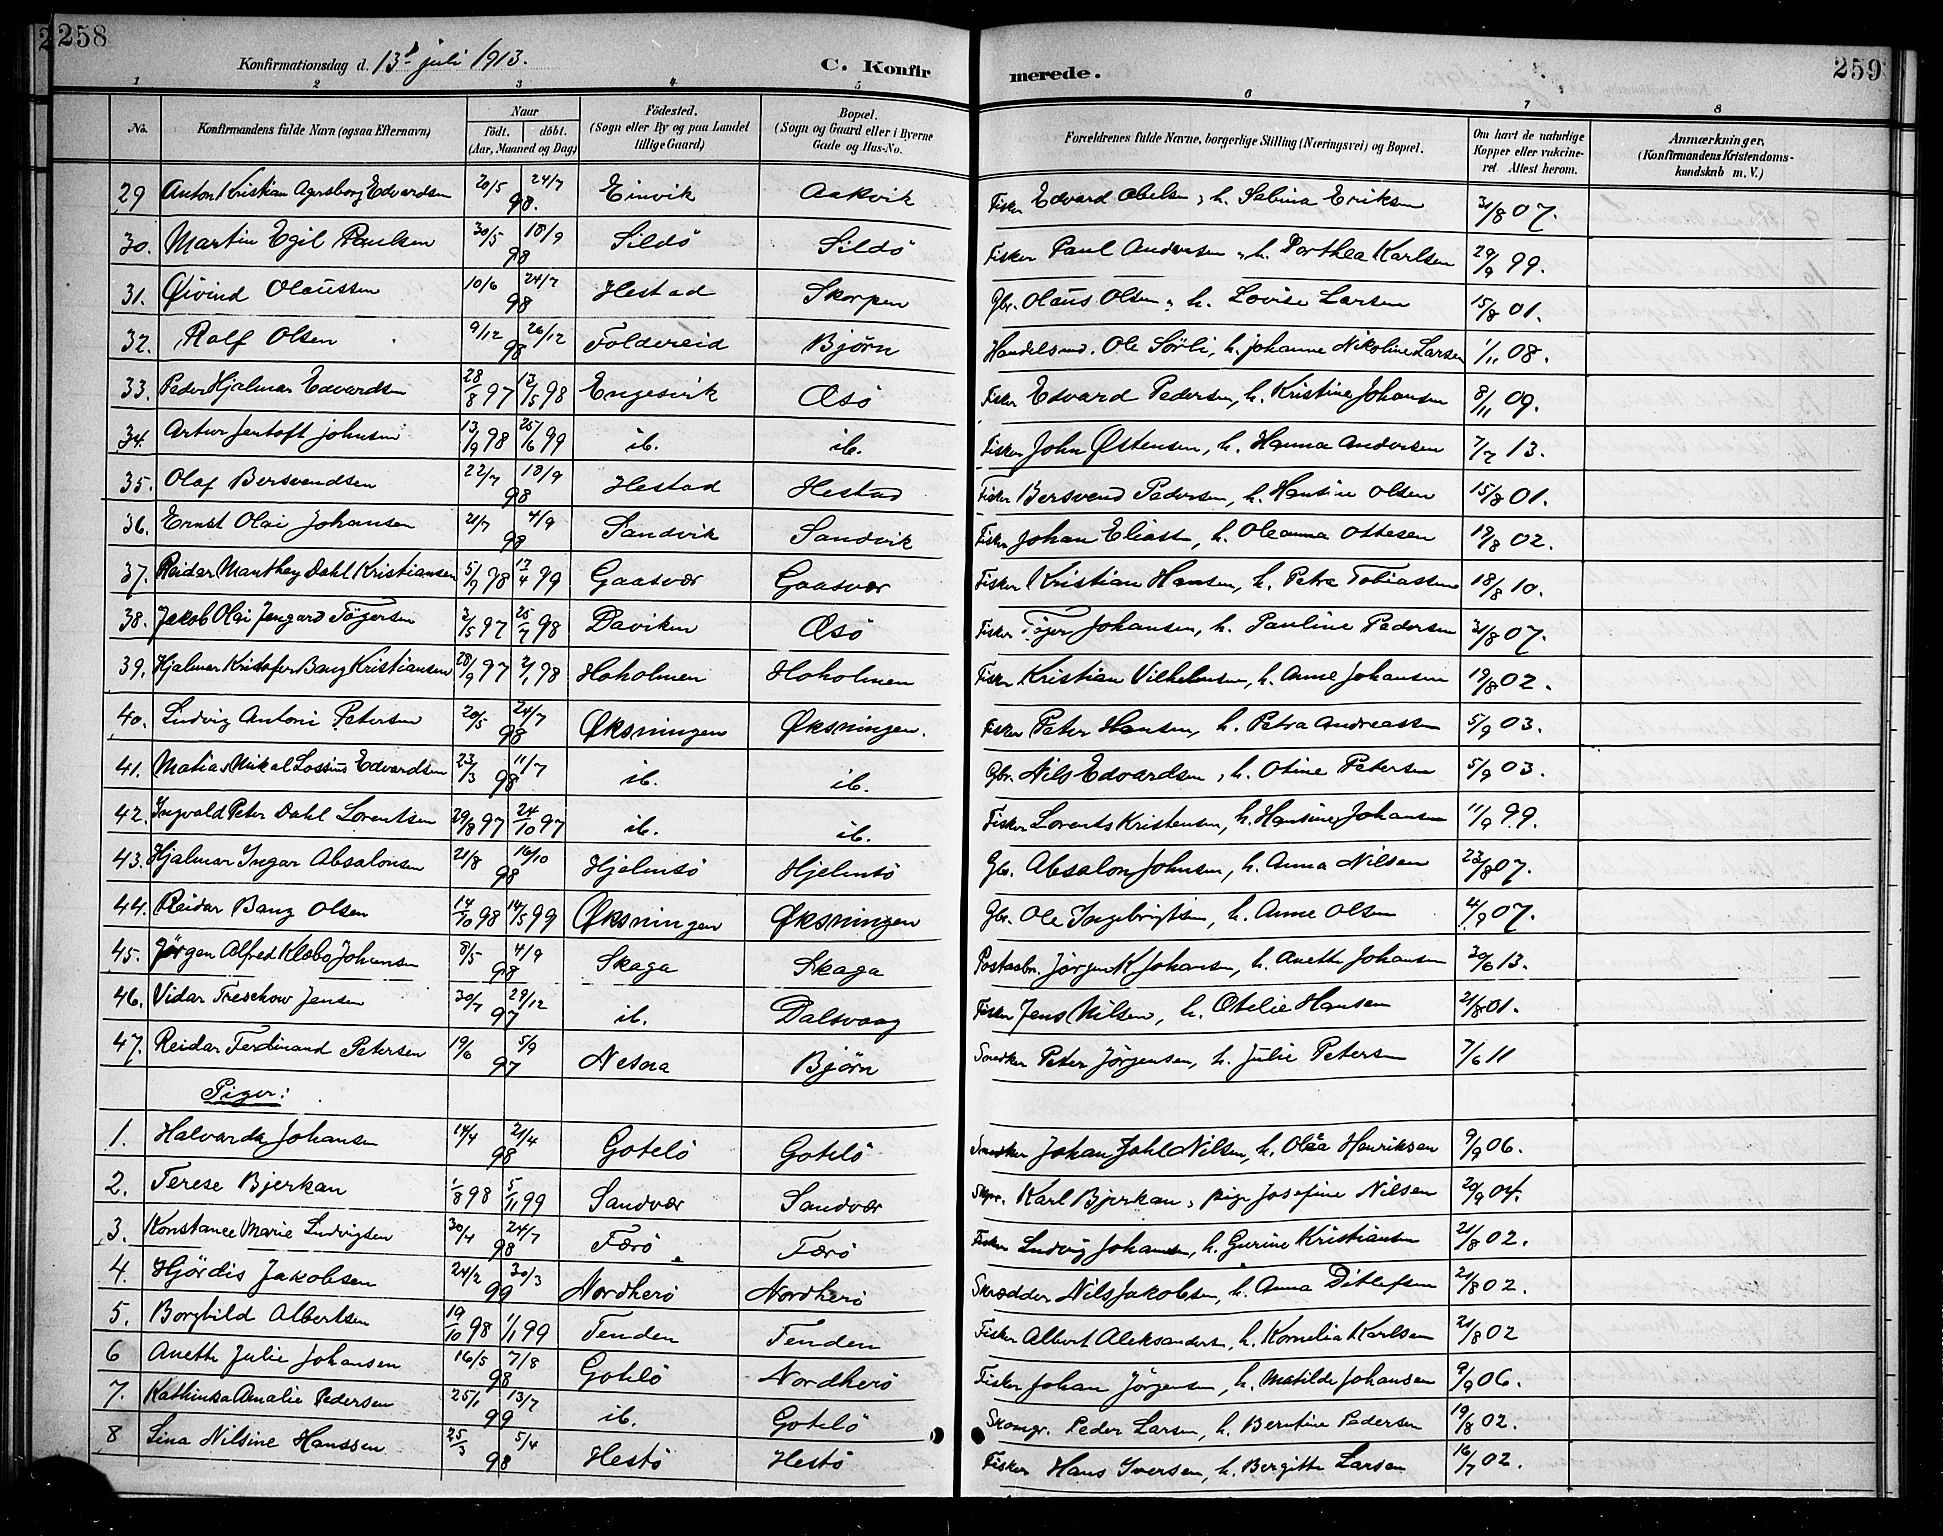 258
259
Konfirmationsdag d. 13d juli 1913.
C. Konfirmerede.
1 2 3 4 5 6 7 8
No. | Konfirmandens fulde Navn (ogsaa Efternavn) | Naar født. døbt. (Aar, Maaned og Dag) | Fødested. (Sogn eller By og paa Landet tillige Gaard) | Bopæl. (Sogn og Gaard eller i Byerne Gade og Hus-No. | Forældrenes fulde Navne, borgerlige Stilling (Næringsvei) og Bopæl. | Om havt de naturlige Kopper eller vakcineret. Attest herom. | Anmærkninger, (Konfirmandens Kristendomskundskab m. V.)
29 Anton Kristian Agersborg Edvardsen 20/5 24/7 98. Einvik Aakvik Fisker Edvard Abelsen, h. Sabina Eriksen 31/8 07.
30. Martin Egil Paulsen 30/5 18/9 98 Sildø Sildø Fisker Paul Andersen, h. Dorthea Karlsen 29/9 99.
31. Øivind Olaussen 10/6 24/7 98 Hestad Skorpen Gbr. Olaus Olsen, h. Lovise Larsen 15/8 01.
32. Ralf Olsen 9/12 26/12 98 Foldereid Bjørn Handelsmd. Ole Sørli, h. Johanne Nikoline Larsen 1/11 08.
33. Peder Hjalmar Edvardsen 28/8 97 13/5 98 Engesvik Æsø Fisker Edvard Pedersen, h. Kristine Johansen 8/11 09.
34. Artur Jentoft Johnsen 13/9 98 25/6 99 ib. ib. Fisker John Østensen, h. Hanna Andersen 7/7 13.
35. Olaf Bersvendsen 22/7 18/9 98 Hestad Hestad Fisker Bersvend Pedersen, h. Hansine Olsen 15/8 01.
36. Ernst Olai Johansen 21/7 4/9 98 Sandvik Sandvik Fisker Johan Eliass, h. Oleanna Ottesen 19/8 02.
37. Reidar Manthey Dahl Kristiansen 5/9 98 13/4 99 Gaasvær Gaasvær Fisker Kristian Hansen, h. Petra Tobiassen 18/8 10.
38. Jakob Olai Jengard Tøgersen 3/5 97 25/7 98 Daviken Æsø Fisker Tøger Johansen, h. Pauline Pedersen 31/8 07.
39. Hjalmar Kristofer Bang Kristiansen 28/9 97 2/1 98 Hoholmen Hoholmen Fisker Kristian Vilhelmsen, h. Anne Johansen 19/8 02.
40. Ludvig Antoni Petersen 20/5 24/7 98 Øksningen Øksningen. Fisker Peter Hansen, h. Petra Andreassen 5/9 03.
41. Matias Mikal Lossius Edvardsen 23/3 11/7 98 ib. ib. Gbr. Nils Edvardsen, h. Otine Petersen 5/9 03.
42. Ingvald Peter Dahl Lorentsen 29/8 97 24/10 97 ib. ib. Fisker Lorents Kristensen, h. Hansine Johansen 11/9 99.
43. Hjalmar Ingar Absalonsen 21/8 16/10 98 Hjelmsø Hjelmsø Gbr. Absalon Johnsen, h. Anna Nilsen 23/8 07.
44. Reidar Bang Olsen 14/10 98 14/5 99 Øksningen Øksningen Gbr. Ole Ingebrigtsen, h. Anne Olsen 4/9 07.
45. Jørgen Alfred Klæbo Johansen 8/5 4/9 98 Skaga Skaga Postaabn. Jørgen K Johansen, h. Anette Johansen 30/6 13.
46. Vidar Treschow Jensen 30/7 29/12 97 ib. Dalsvaag Fisker Jens Nilsen, h. Otelie Hansen 21/8 01.
47. Reidar Ferdinand Petersen 19/6 5/9 97 Nesna Bjørn Snedker Peter Jørgensen, h. Julie Petersen 7/6 11
Piger:
1. Halvarda Johansen 14/4 21/4 98 Gotelø Gotelø Snedker Johan Dahl Nilsen, h. Olea Henriksen 9/9 06.
2. Terese Bjerkan 1/8 98 5/11 99 Sandvær Sandvær Karl Bjerkan, pige Josefine Nilsen 20/9 04.
3. Konstance Marie Ludvigsen 30/4 24/7 98 Færø Færø Fisker Ludvig Johansen, h. Gurine Kristiansen 21/8 02.
4. Hjørdis Jakobsen 24/2 30/3 99 Nordherø Nordherø Skrædder Nils Jakobsen, h. Anna Ditlefsen 21/8 02.
5. Borghild Albertsen 19/10 98 1/1 99 Tenden Tenden Fisker Albert Aleksanders, h. Kornelia Karlsen 21/8 02
6 Anette Julie Johansen 16/5 7/8 98 Gotelø Nordherø Fisker Johan Jørgensen, h. Matilde Johansen 9/9 06.
7. Kathinka Amalie Pedersen 25/1 13/7 99 ib. Gotelø Skomgr. Peder Larsen, h. Berntine Pedersen 19/8 02.
8 Lina Nilsine Hanssen 25/3 5/4 98 Hestø Hestø Fisker Hans Iversen, h. Bergitte Larsen 16/7 02.